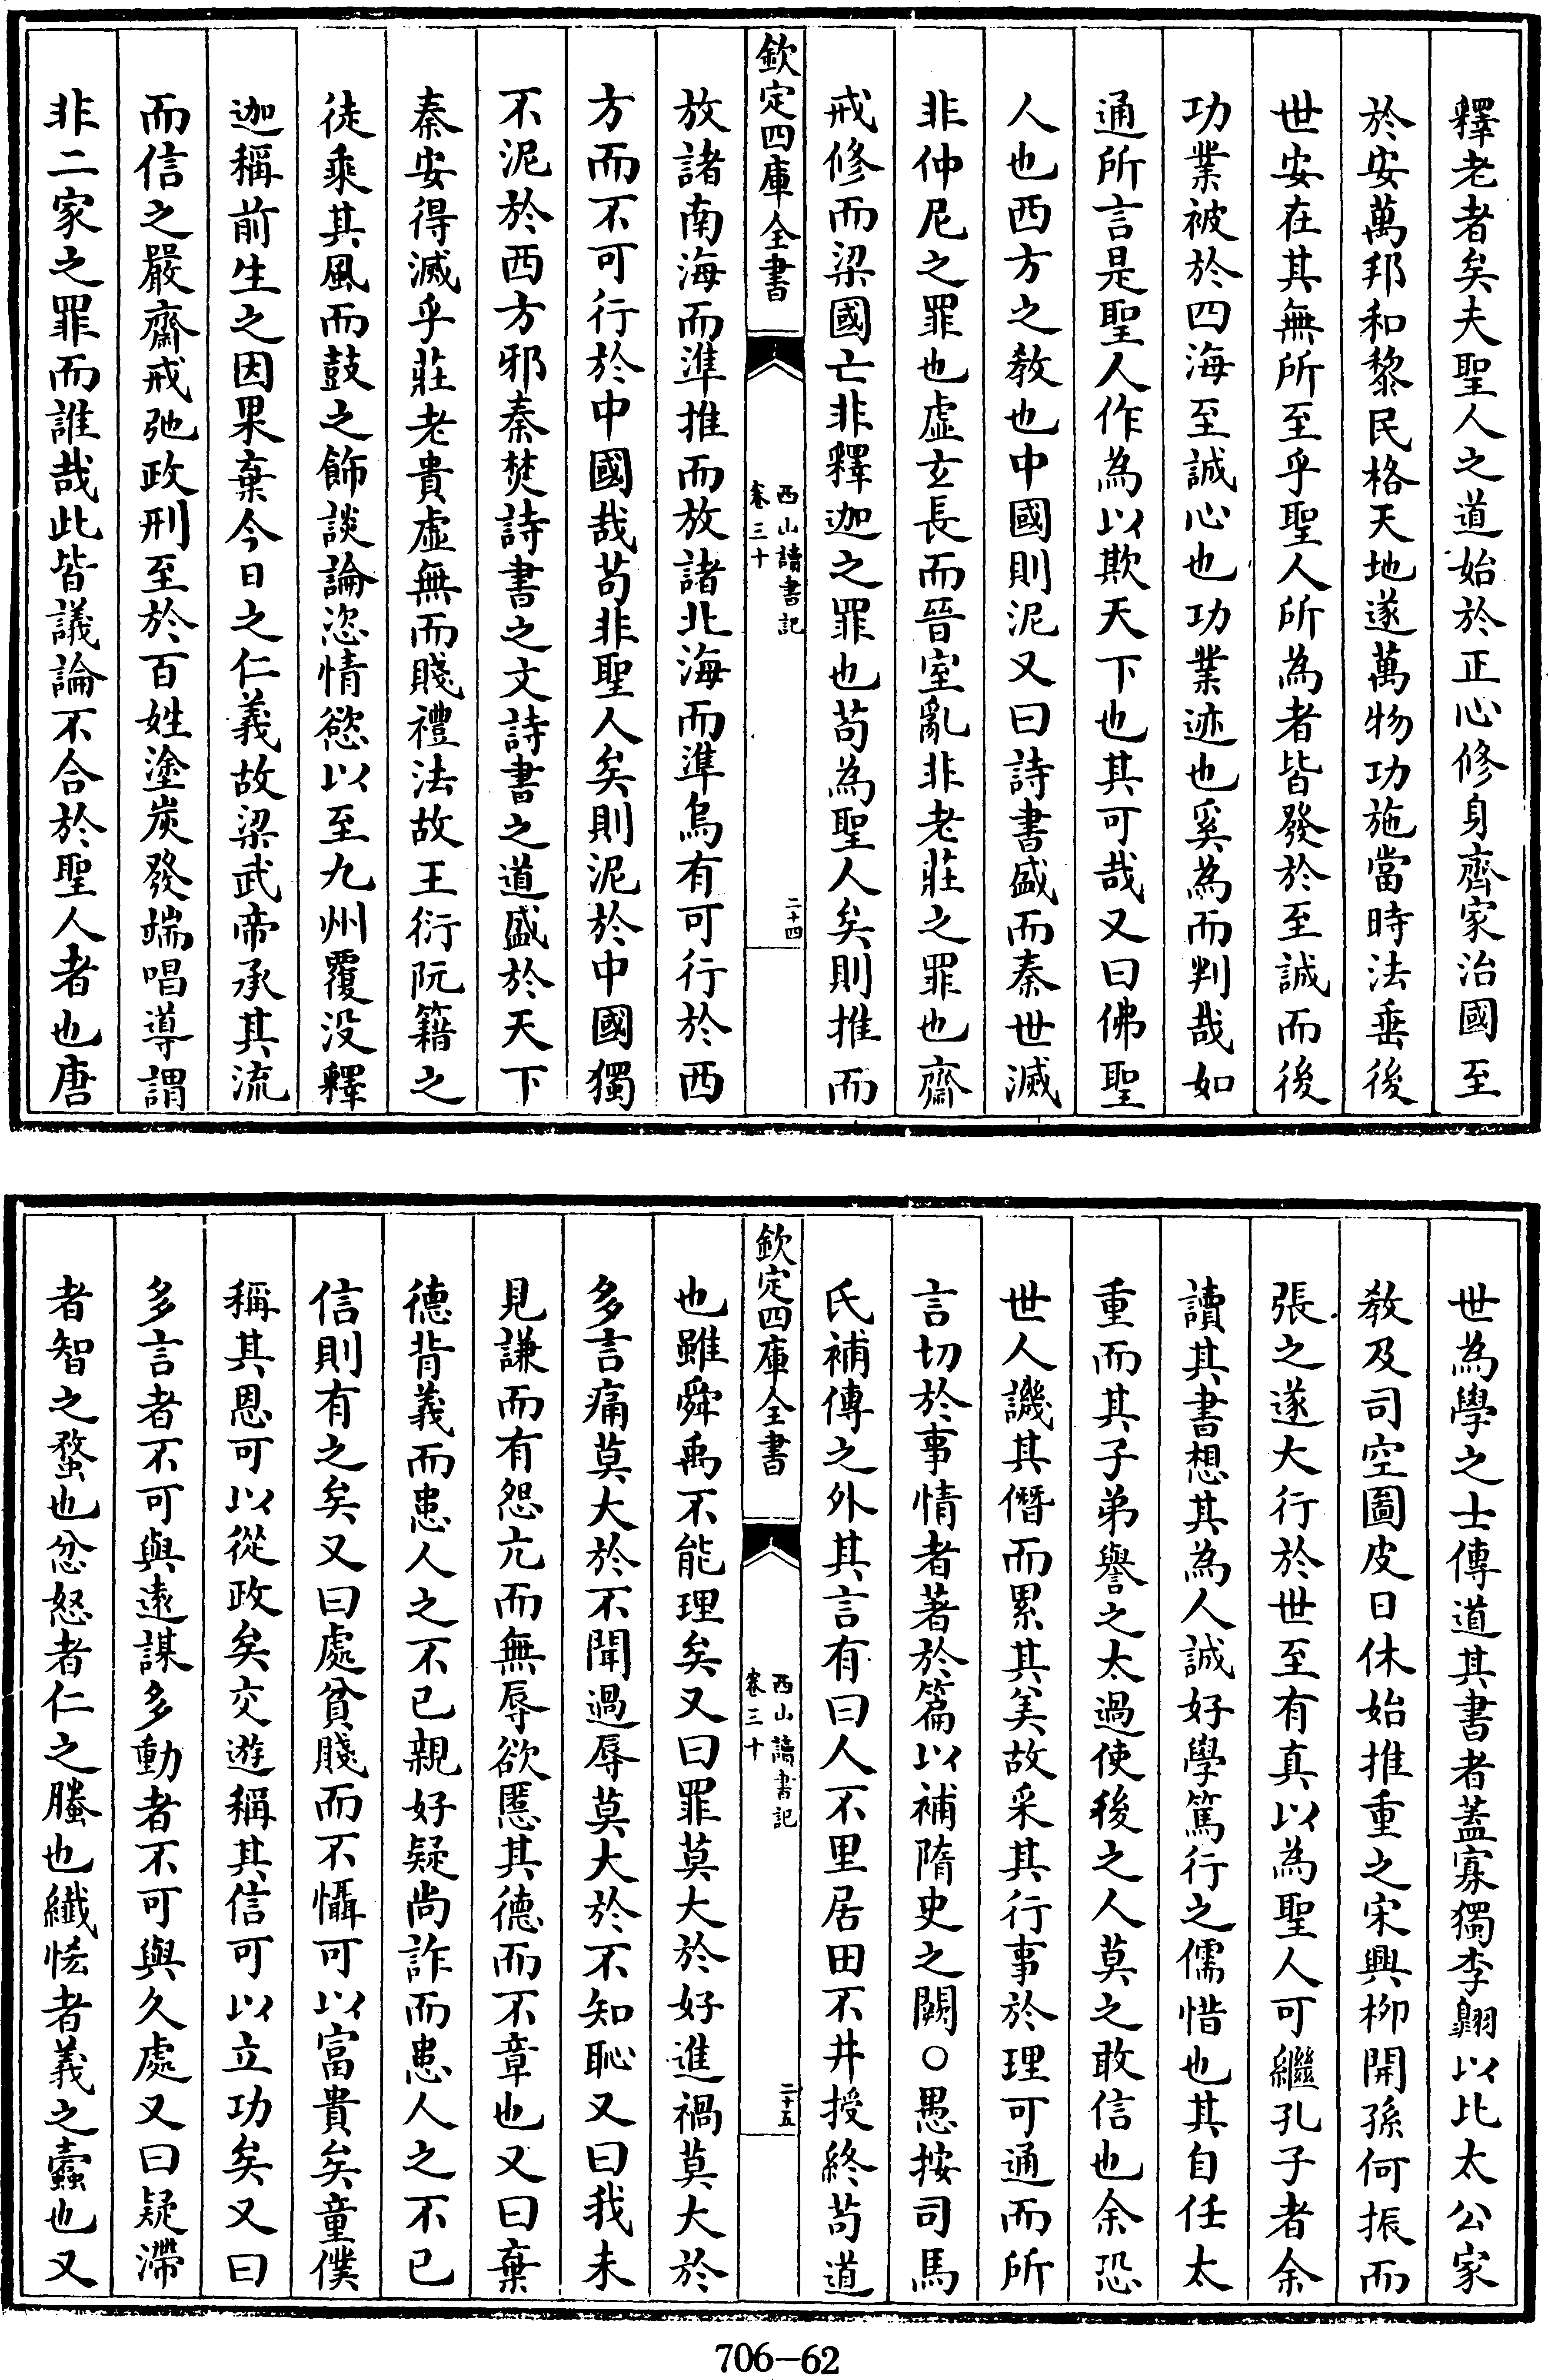 釋老者矣夫聖人之道始於正心修身齊家治國至
於安萬邦和黎民格天地遂萬物功施當時法垂後
世安在其無所至乎聖人所為者皆發於至誠而後
功業被於四海至誠心也功業迹也奚為而判哉如
通所言是聖人作為以欺天下也其可哉又曰佛聖
人也西方之教也中國則泥又曰詩書盛而秦世滅
非仲尼之罪也虛玄長而晉室亂非老莊之罪也齋
戒修而梁國亡非釋迦之罪也苟為聖人矣則推而
欽定四庫全書
西山讀書記
卷三十
二十四
放諸南海而準推而放諸北海而準烏有可行於西
方而不可行於中國哉苟非聖人矣則泥於中國獨
不泥於西方邪秦焚詩書之文詩書之道盛於天下
秦安得滅乎莊老貴虛無而賤禮法故王衍阮籍之
徒乘其風而鼓之飾談論恣情慾以至九州覆没釋
迦稱前生之因果棄今日之仁義故梁武帝承其流
而信之嚴齋戒弛政刑至於百姓塗炭發端唱導謂
非二家之罪而誰哉此皆議論不合於聖人者也唐
世為學之士傳道其書者蓋寡獨李翺以比太公家
教及司空圖皮日休始推重之宋興栁開孫何振而
張之遂大行於世至有真以為聖人可繼孔子者余
讀其書想其為人誠好學篤行之儒惜也其自任太
重而其子弟譽之太過使後之人莫之敢信也余恐
世人譏其僭而累其美故采其行事於理可通而所
言切於事情者著於篇以補隋史之闕○愚按司馬
氏補傳之外其言有曰人不里居田不井授終苟道
欽定四庫全書
西山讀書記
卷三十
二十五
也雖舜禹不能理矣又曰罪莫大於好進禍莫大於
多言痛莫大於不聞過辱莫大於不知恥又曰我未
見謙而有怨亢而無辱欲慝其德而不章也又曰棄
德背義而患人之不已親好疑尚詐而患人之不已
信則有之矣又曰處貧賤而不懾可以富貴矣童僕
稱其恩可以從政矣交遊稱其信可以立功矣又曰
多言者不可與遠謀多動者不可與久處又曰疑滯
者智之蝥也忿怒者仁之螣也纖悋者義之蠹也又
706—62